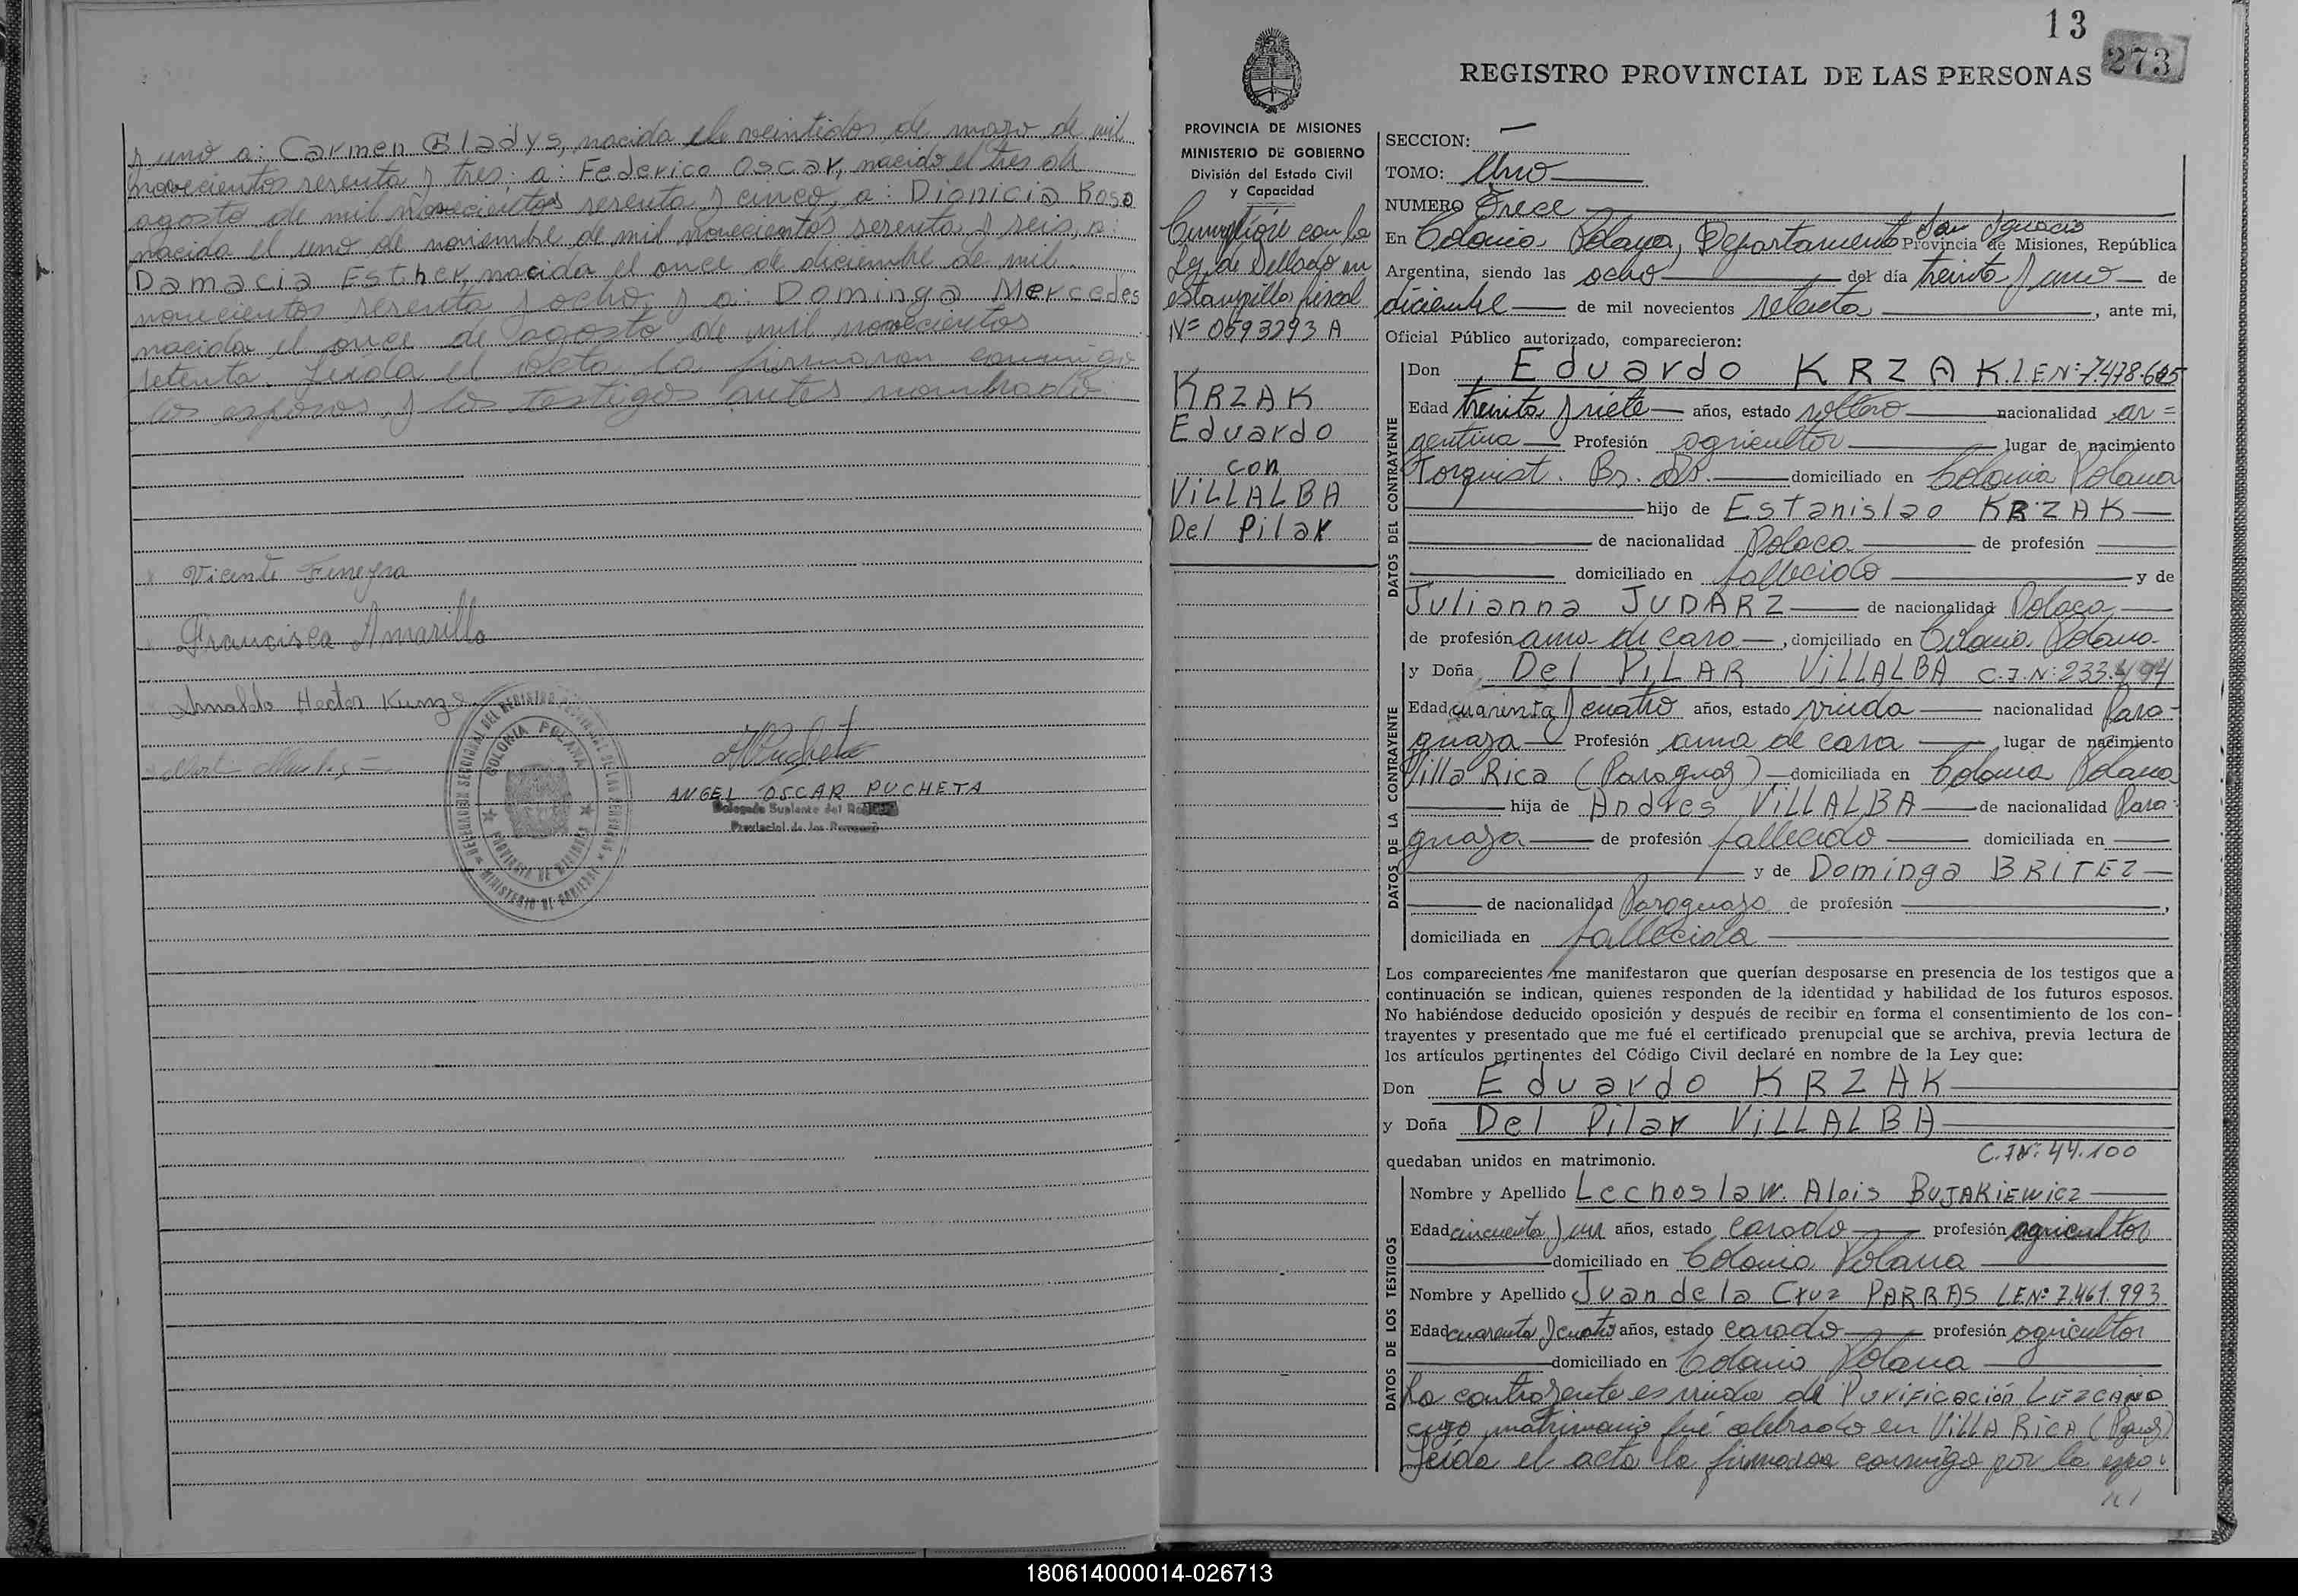 y uno a: Carmen Gladys, nacida el veintidos de mayo de mil
novecientos sesenta y tres; a: Federico Oscar, nacido el tres de
agosto de mil novecientos sesenta y cinco, a: Dionicia Rosa
nacida el uno de noviembre de mil novecientos sesenta y seis, a:
Damacia Esther, nacida el once de diciembre de mil
novecientos sesenta y ocho, y a: Dominga Mercedes
nacida el once de agosto de mil novecientos
setenta. Leída el acta la firmaron conmigo
los esposos y los testigos antes nombrados
x Vicente
Francisca Amarilla
Arnaldo Hector Kunz
ANGEL OSCAR PUCHETA
Delegado Suplente del
Provincial de las Personas
COLONIA POLANA
PROVINCIA DE MISIONES
MINISTERIO DE GOBIERNO
13
273
REGISTRO PROVINCIAL DE LAS PERSONAS
PROVINCIA DE MISIONES
MINISTERIO DE GOBIERNO
División del Estado Civil
y Capacidad
Cumplióse con la
Ley de Sellado en
estampilla fiscal
Nº 0593293 A
KRZAK
Eduardo
con
ViLLALBA
Del Pilar
SECCION: —
TOMO: Uno
NUMERO Trece
En Colonia Polana, Departamento San Ignacio Provincia de Misiones, República
Argentina, siendo las ocho del día treinta y uno de
diciembre de mil novecientos setenta, ante mi,
Oficial Público autorizado, comparecieron:
DATOS DEL CONTRAYENTE
Don Eduardo KRZAK. L E Nº: 7.478.685
Edad treinta y siete años, estado soltero nacionalidad ar=
gentina Profesión agricultor lugar de nacimiento
Torquist. Bs. As. domiciliado en Colonia Polana
hijo de Estanislao KRZAK
de nacionalidad Polaca de profesión
domiciliado en fallecido y de
Julianna JUDARZ de nacionalidad Polaca
de profesión ama de casa, domiciliado en Colonia Polana
DATOS DE LA CONTRAYENTE
y Doña Del PiLAR ViLLALBA C.I.Nº: 233.494
Edad cuarenta y cuatro años, estado viuda nacionalidad Para-
guaya Profesión ama de casa lugar de nacimiento
Villa Rica (Paraguay) domiciliada en Colonia Polana
hija de Andres ViLLALBA de nacionalidad Para-
guaya de profesión fallecido domiciliada en
y de Dominga BRiTEZ
de nacionalidad Paraguaya de profesión ,
domiciliada en fallecida
Los comparecientes me manifestaron que querían desposarse en presencia de los testigos que a
continuación se indican, quienes responden de la identidad y habilidad de los futuros esposos.
No habiéndose deducido oposición y después de recibir en forma el consentimiento de los con-
trayentes y presentado que me fué el certificado prenupcial que se archiva, previa lectura de
los artículos pertinentes del Código Civil declaré en nombre de la Ley que:
Don Eduardo KRZAK
y Doña Del Pilar ViLLALBA
quedaban unidos en matrimonio. C.I.Nº: 44.100
DATOS DE LOS TESTIGOS
Nombre y Apellido Lechoslaw. Alois BUJAKiEWicz
Edad cincuenta y un años, estado casado profesión agricultor
domiciliado en Colonia Polana
Nombre y Apellido Juan de la Cruz PARRAS L E Nº 7.461.993
Edad cuarenta y cuatro años, estado casado profesión agricultor
domiciliado en Colonia Polana
La contrayente es viuda de Purificación LEZCANO
cuyo matrimonio fué celebrado en ViLLA RiCA (Paraguay)
Leída el acta la firmaron conmigo por la espo-
180614000014-026713